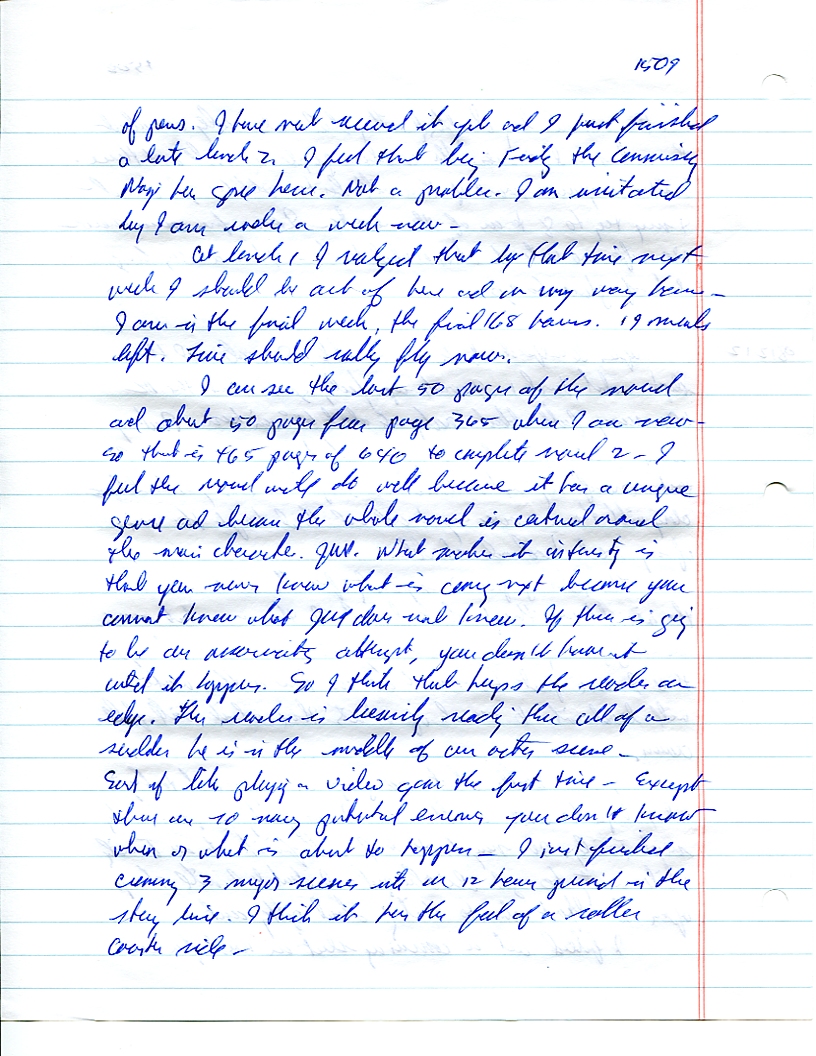 1509
of pens. I have not received it yet and I just finished
a late lunch. I feel that being Friday the Commissary
may be gone home. Not a problem. I am
I am under a week now -
At lunch I realized that by that time next
week I should be out of here and on my way home -
I am in the final week, the final 168 hours. 19 meals
left. Time should really fly now.
I can see the last 50 pages of the novel
and about 50 pages from page 365 where I am now -
so that is 465 pages of 640 to complete novel 2 - I
feel the novel will do well because it has a unique
genre and because the whole novel is centered around
the main character. What makes it interesting is
that you never know what is coming next because you
cannot know what does not know. If there is going
to be an assassination attempt, you don't know it
until it happens. So I think that keeps the reader on
edge. The reader is reading then all of a
sudden he is in the middle of an action scene -
Sort of like playing a video game the first time - Except
there are so many potential enemies you don't know
when or what is about to happen - I just finished
cramming 3 major scenes into a 12 hour period in the
story line. I think it has the feel of a roller
coaster ride -